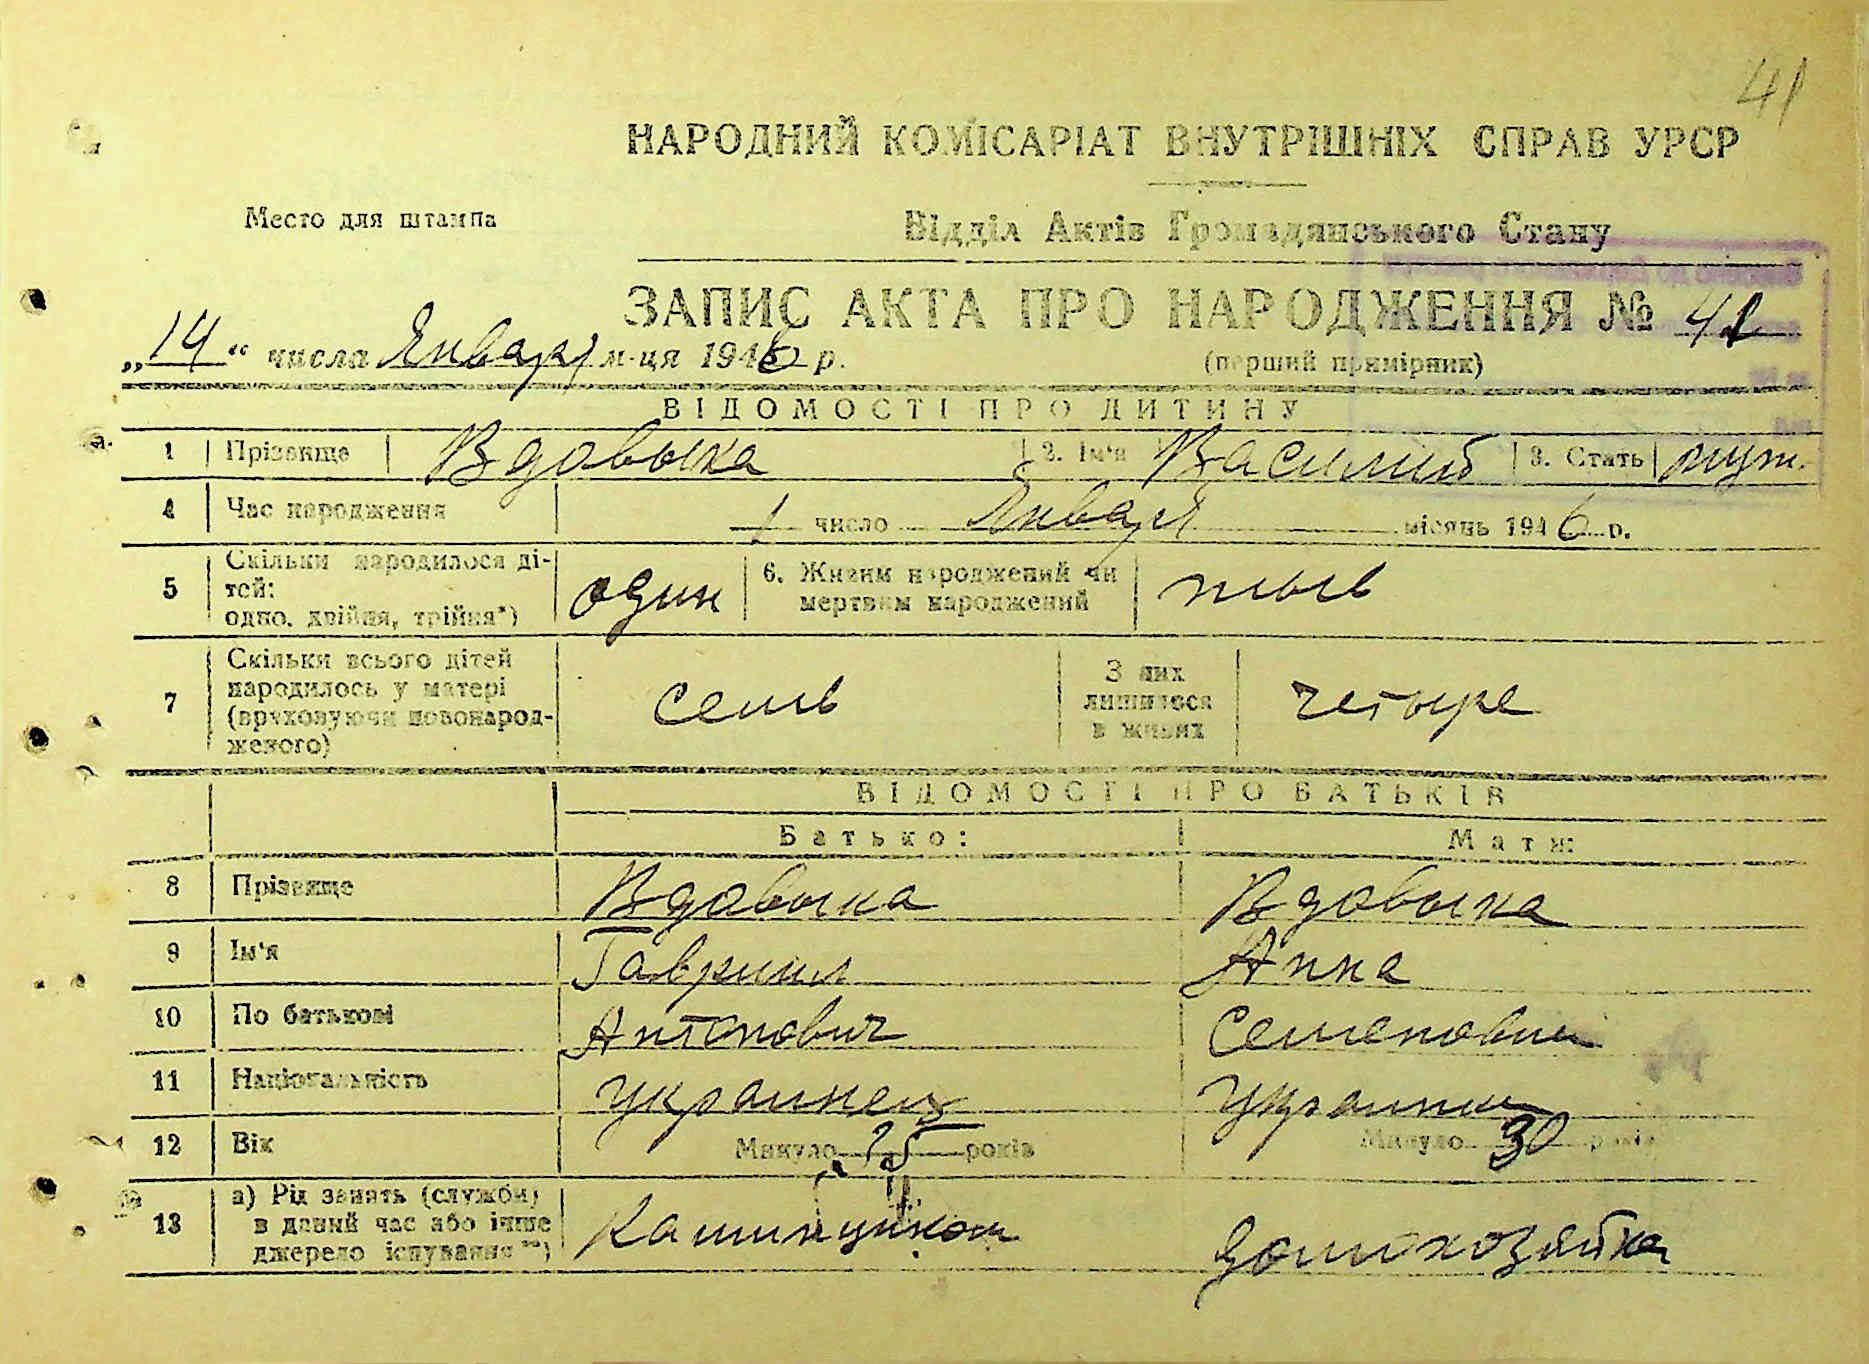 41
НАРОДНИЙ КОМІСАРІАТ ВНУТРІШНІХ СПРАВ УРСР
Место для штампа
Відділ Актів Громадянського Стану
ЗАПИС АКТА ПРО НАРОДЖЕННЯ № 41
„14“ числа Января м-ця 1946 р.
(перший примірник)
ВІДОМОСТІ ПРО ДИТИНУ
1 Прізвище Вдовыка 2. Ім'я Василий 3. Стать муж.
4 Час народження 1 число Января місяць 1946 р.
5 Скільки народилося ді-
тей:
одно, двійня, трійня*) один
6. Живим народжений чи
мертвим народжений
7 Скільки всього дітей
народилось у матері
(враховуючи новонарод-
женого) семь
З них
лишилося
в живих четыре
ВІДОМОСТІ ПРО БАТЬКІВ
Батько: Мати:
8 Прізвище Вдовыка Вдовыка
9 Ім'я Гавриил Анна
10 По батькові Антонович Семеновна
11 Національність Украинец Украинка
12 Вік Минуло 35 років Минуло 30 років
13 а) Рід занять (служби)
в даний час або інше
джерело існування**) домохозяйка